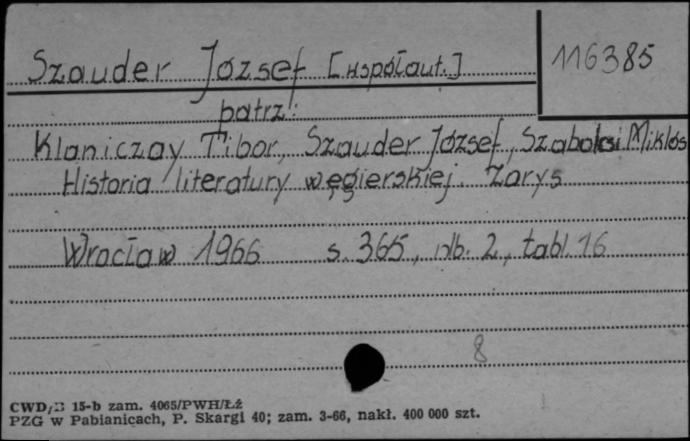 Szauder József [współaut.]
116385
patrz:
Klaniczay Tibor, Szauder József, Szabolcsi Miklós
Historia literatury węgierskiej. Zarys
Wrocław 1966 s. 365, nlb. 2, tabl. 16
8
CWD/B 15-b zam. 4065/PWH/Łź
PZG w Pabianicach, P. Skargi 40; zam. 3-66, nakł. 400 000 szt.